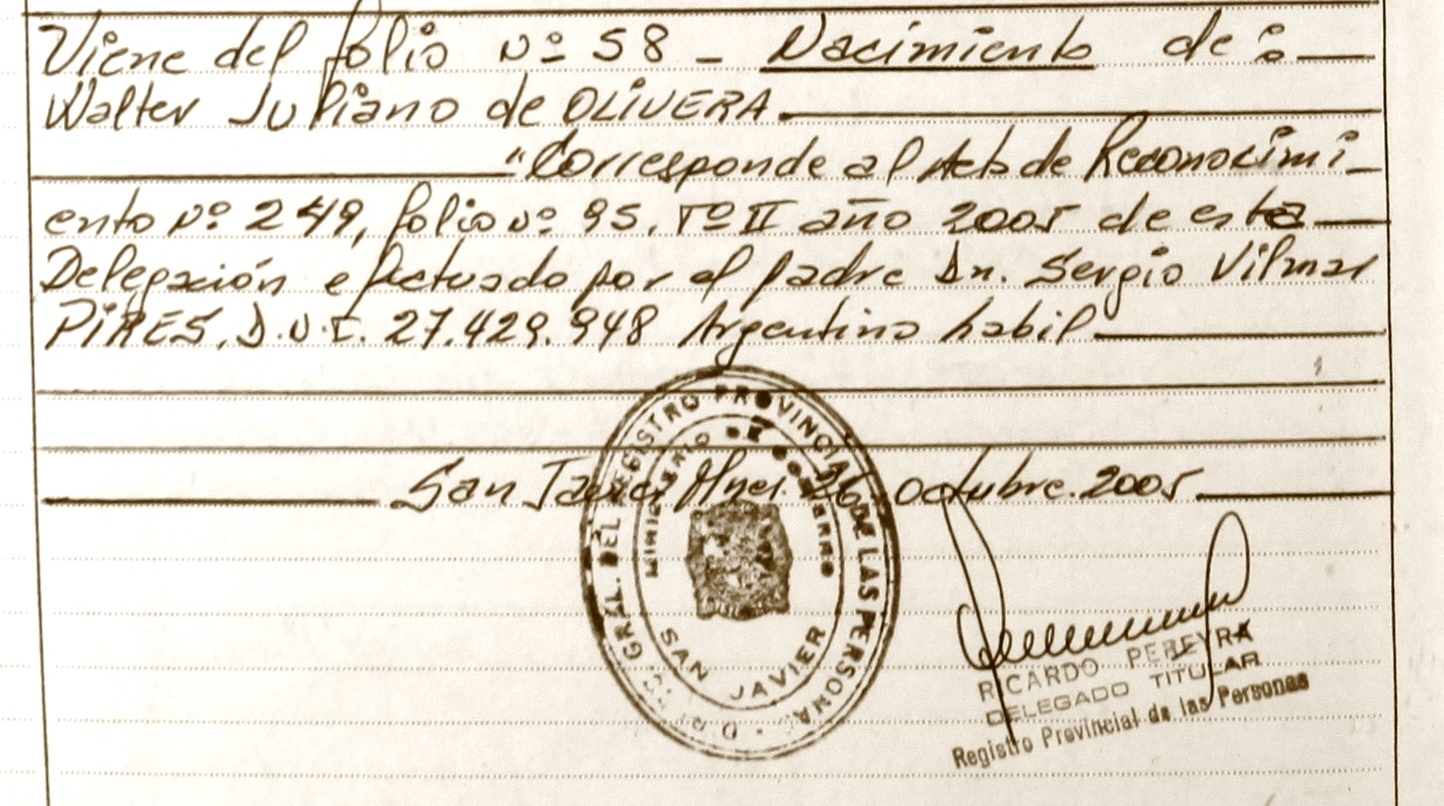 Viene del folio Nº 58 - Nacimiento de:
Walter Juliano de OLIVERA.
"Corresponde al Acto de Reconocimi-
ento Nº 249, folio Nº 95, Tº II año 2005 de esta
Delegación efectuado por el padre Dn. Sergio Vilmar
PIRES, D.N.I. 27.429.948 Argentino habil
San Javier Mnes. 26 octubre. 2005
GRAL. DEL REGISTRO PROVINCIAL DE LAS PERSONAS
MINISTERIO DE GOBIERNO
SAN JAVIER
RICARDO PEREYRA
DELEGADO TITULAR
Registro Provincial de las Personas